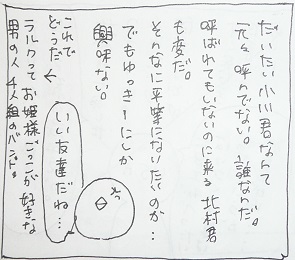 だいたい小川君なんて
元々呼んでない。誰なんだ。
呼ばれてもいないのに来る北村君
も変だ。
そんなに平等にないたいのか…
でもゆっきーにしか
興味ない。
えっ
いい友達だね…
これで
どうだ
ラルクってお姫様ごっこが好きな
男の人4人組のバンド